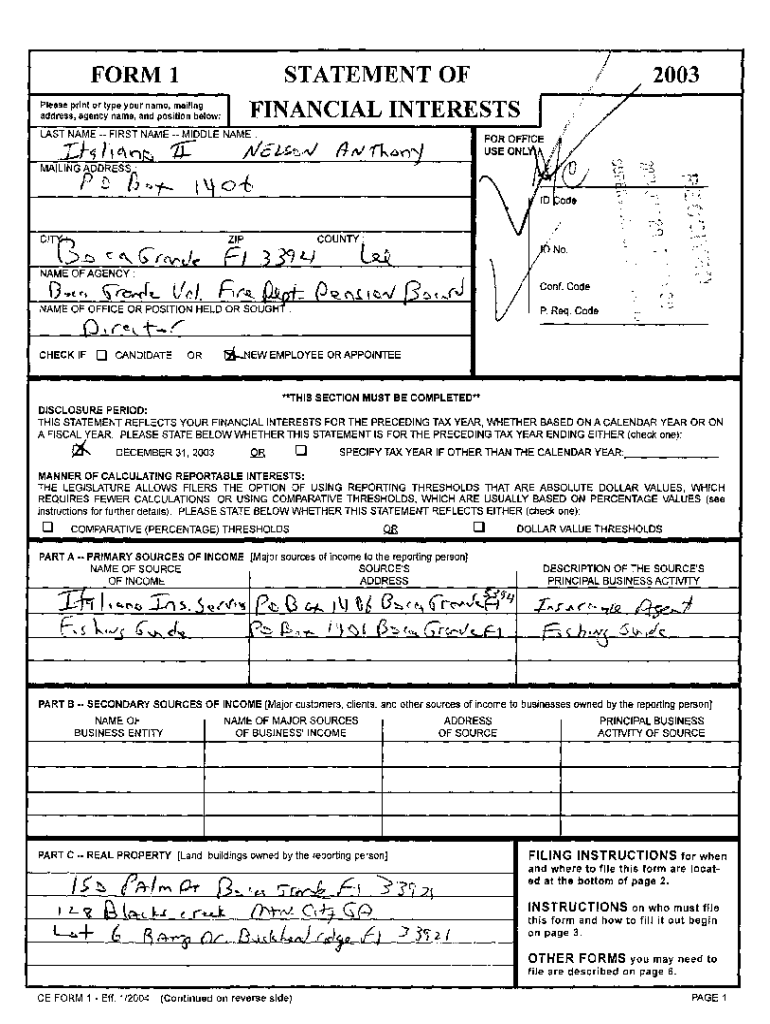 FORM 1
STATEMENT OF
FINANCIAL INTERESTS
2003
Please print or type your name, mailing
address, agency name, and position below:
LAST NAME -- FIRST NAME -- MIDDLE NAME :
Italiano II NELSON ANThony
FOR OFFICE
USE ONLY
MAILING ADDRESS :
PO Box 1406
ID Code
CITY : ZIP : COUNTY :
Boca Grande Fl 3394 Lee
ID No.
NAME OF AGENCY :
Boca Grande Vol. Fire Dept. Pension Board
Conf. Code
NAME OF OFFICE OR POSITION HELD OR SOUGHT :
Director
P. Req. Code
CHECK IF ☐ CANDIDATE OR ☒ NEW EMPLOYEE OR APPOINTEE
**THIS SECTION MUST BE COMPLETED**
DISCLOSURE PERIOD:
THIS STATEMENT REFLECTS YOUR FINANCIAL INTERESTS FOR THE PRECEDING TAX YEAR, WHETHER BASED ON A CALENDAR YEAR OR ON
A FISCAL YEAR. PLEASE STATE BELOW WHETHER THIS STATEMENT IS FOR THE PRECEDING TAX YEAR ENDING EITHER (check one):
☒ DECEMBER 31, 2003 OR ☐ SPECIFY TAX YEAR IF OTHER THAN THE CALENDAR YEAR:
MANNER OF CALCULATING REPORTABLE INTERESTS:
THE LEGISLATURE ALLOWS FILERS THE OPTION OF USING REPORTING THRESHOLDS THAT ARE ABSOLUTE DOLLAR VALUES, WHICH
REQUIRES FEWER CALCULATIONS OR USING COMPARATIVE THRESHOLDS, WHICH ARE USUALLY BASED ON PERCENTAGE VALUES (see
instructions for further details). PLEASE STATE BELOW WHETHER THIS STATEMENT REFLECTS EITHER (check one):
☐ COMPARATIVE (PERCENTAGE) THRESHOLDS OR ☐ DOLLAR VALUE THRESHOLDS
PART A -- PRIMARY SOURCES OF INCOME [Major sources of income to the reporting person]
NAME OF SOURCE OF INCOME
SOURCE'S ADDRESS
DESCRIPTION OF THE SOURCE'S PRINCIPAL BUSINESS ACTIVITY
Italiano Ins. Servis PO Box 1406 Boca Grande Fl Insurance Agent
Fishing Guide PO Box 1406 Boca Grande Fl Fishing Guide
PART B -- SECONDARY SOURCES OF INCOME [Major customers, clients, and other sources of income to businesses owned by the reporting person]
NAME OF BUSINESS ENTITY
NAME OF MAJOR SOURCES OF BUSINESS' INCOME
ADDRESS OF SOURCE
PRINCIPAL BUSINESS ACTIVITY OF SOURCE
PART C -- REAL PROPERTY [Land, buildings owned by the reporting person]
150 Palm Dr Boca Grande Fl 33921
128 Blacks creek Mtn. City GA
Lot 6 Fl 33921
FILING INSTRUCTIONS for when
and where to file this form are locat-
ed at the bottom of page 2.
INSTRUCTIONS on who must file
this form and how to fill it out begin
on page 3.
OTHER FORMS you may need to
file are described on page 6.
CE FORM 1 - Eff. 1/2004 (Continued on reverse side) PAGE 1